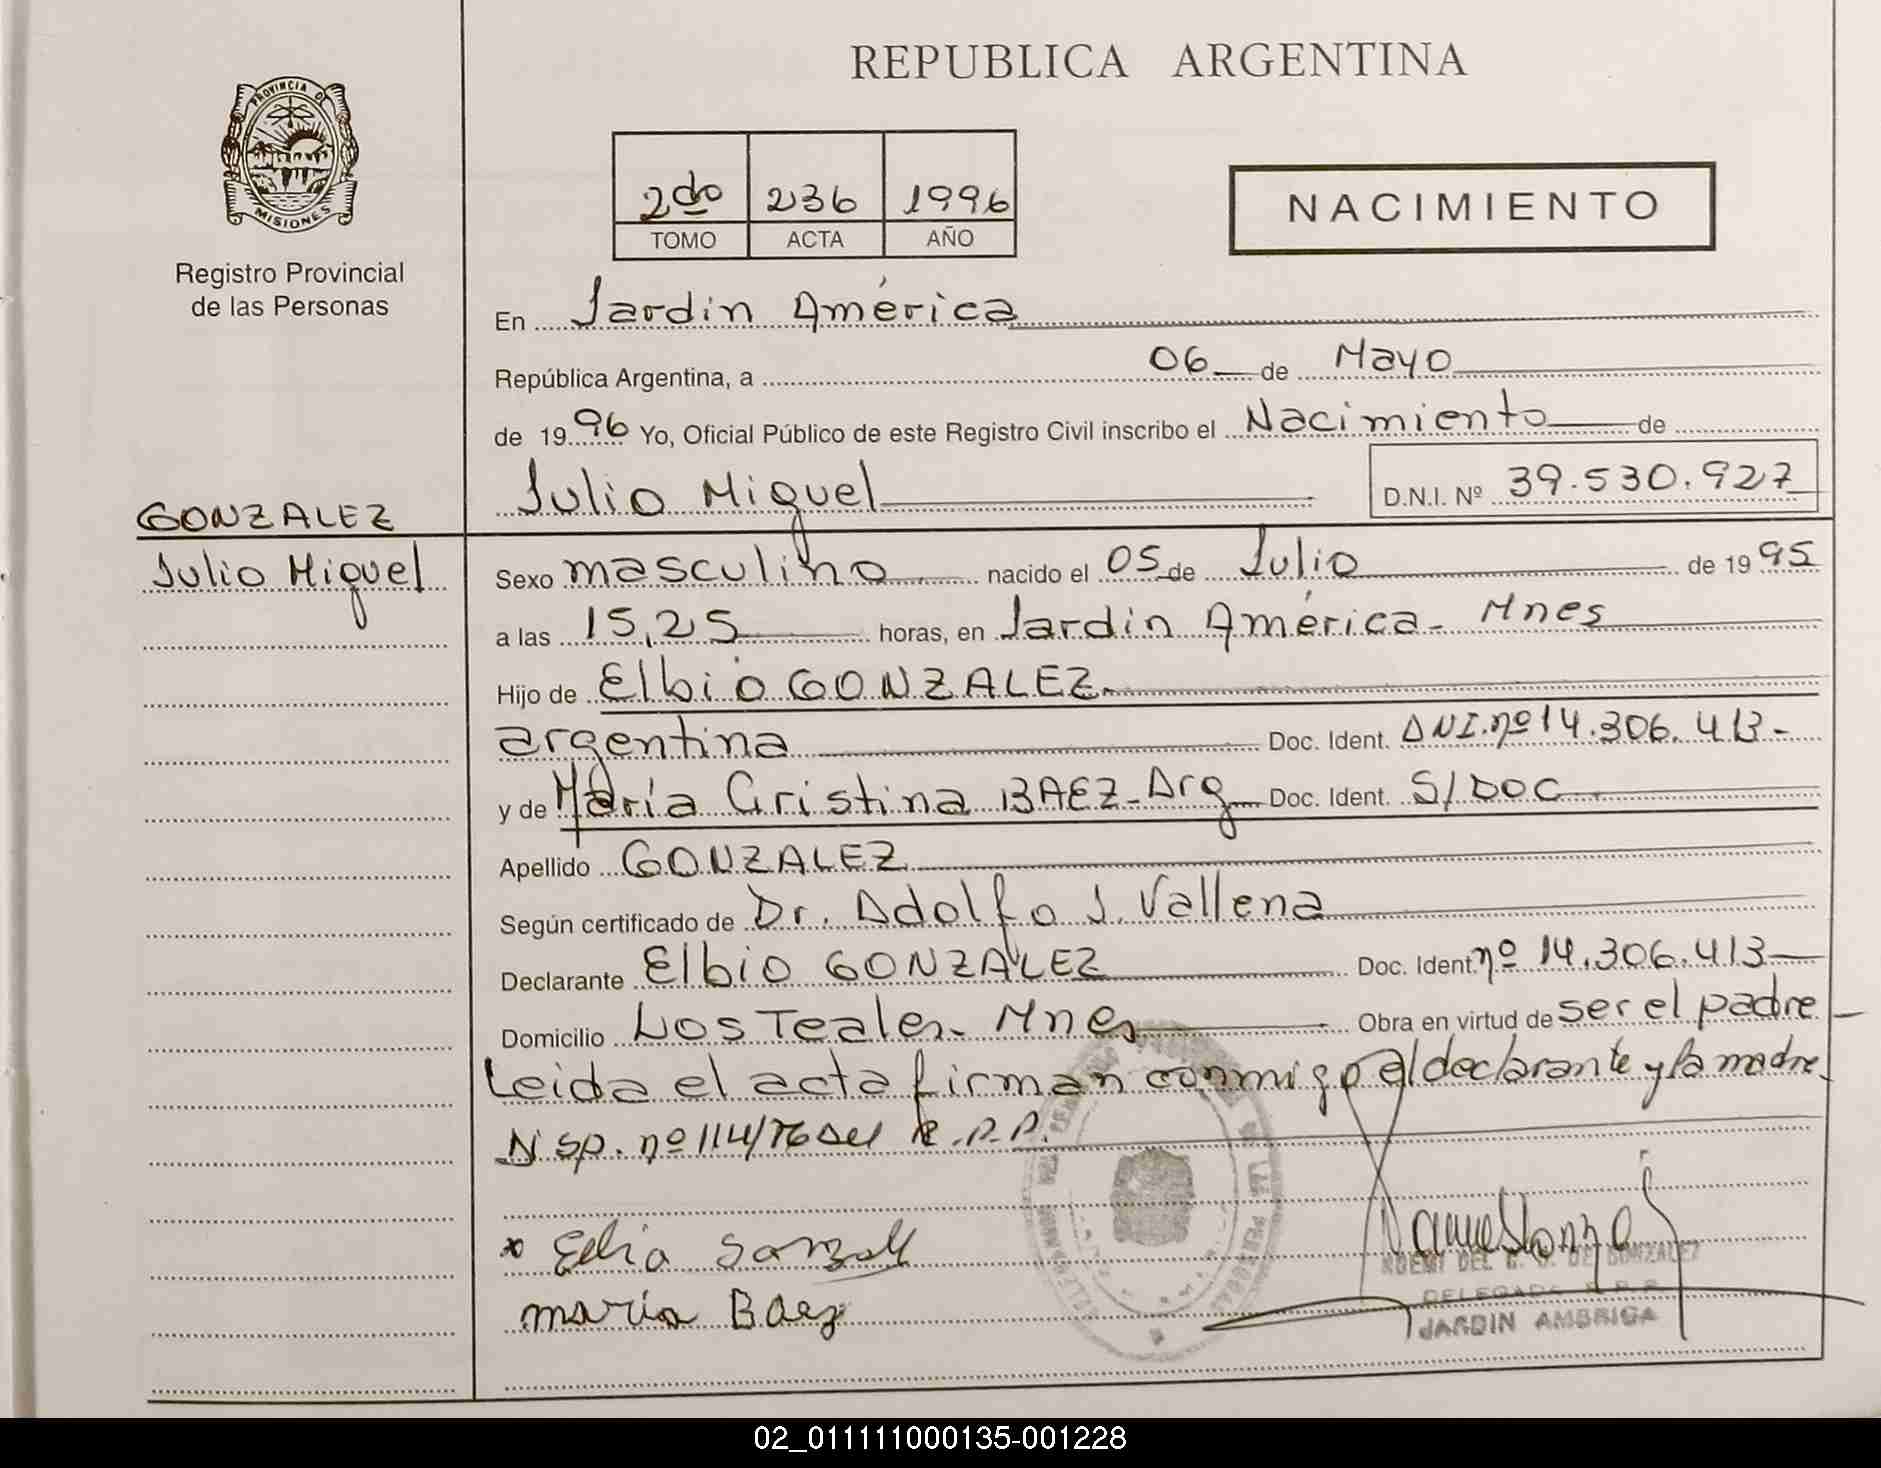 REPUBLICA ARGENTINA
PROVINCIA DE
MISIONES
Registro Provincial
de las Personas
2do 236 1996
TOMO ACTA AÑO
NACIMIENTO
En Jardin América
República Argentina, a 06 de Mayo
de 1996 Yo, Oficial Público de este Registro Civil inscribo el Nacimiento de
Julio Miguel D.N.I. Nº 39.530.927
GONZALEZ
Julio Miguel
Sexo masculino nacido el 05 de Julio de 1995
a las 15,25 horas, en Jardin América - Mnes
Hijo de Elbio GONZALEZ
argentina Doc. Ident. DNI.nº 14.306.413-
y de María Cristina BAEZ - Arg Doc. Ident. S/DOC
Apellido GONZALEZ
Según certificado de Dr. Adolfo J. Vallena
Declarante Elbio GONZALEZ Doc. Ident. nº 14.306.413
Domicilio Los Teales - Mnes Obra en virtud de ser el padre
Leida el acta firman conmigo el declarante y la madre
nº 114/76 del R.P.P.
maria Baez
NOEMI DEL DE GONZALEZ
DELEGADA R.P.P.
JARDIN AMERICA
02_011111000135-001228